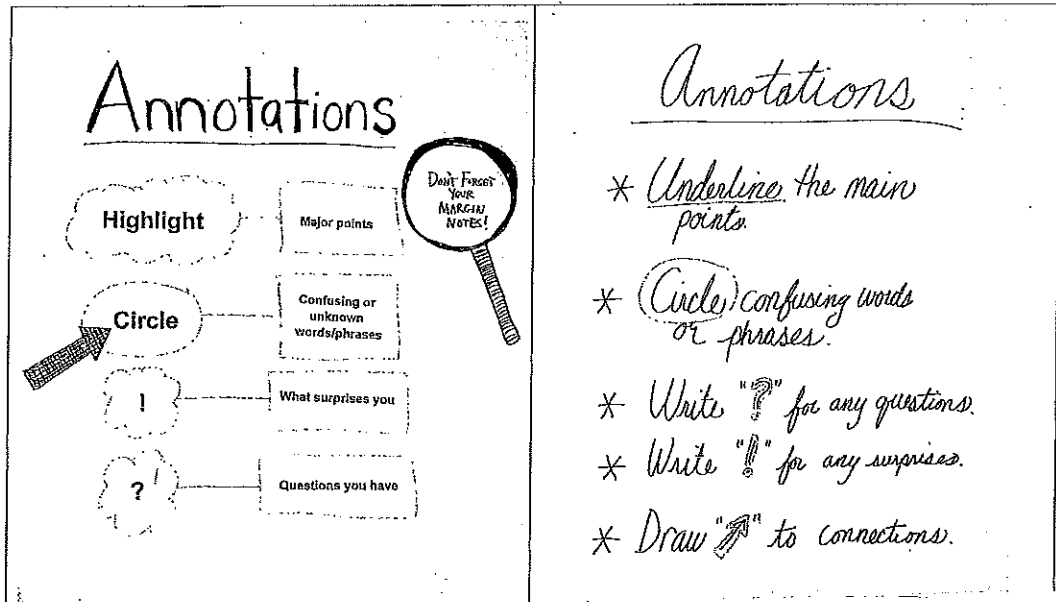 Annotations
DON'T FORGET
YOUR
MARGIN
NOTES!
Highlight
Major points
Circle
Confusing or
unknown
words/phrases
!
What surprises you
?
Questions you have
Annotations
* Underline the main
points.
* Circle confusing words
or phrases.
* Write "?" for any questions.
* Write "!" for any surprises.
* Draw "↗" to connections.